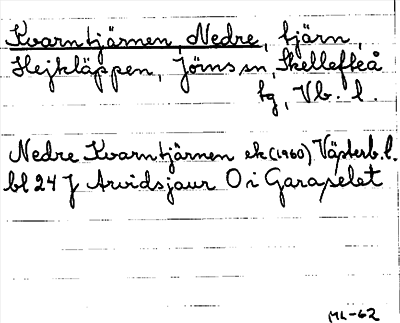 Kvarntjärnen, Nedre, tjärn,
Hejkläppen, Jörns sn, Skellefteå
tg, Vb. l.
Nedre Kvarntjärnen ek (1960) Västerb. l.
bl 24 J Arvidsjaur O i Garaselet
ML-62